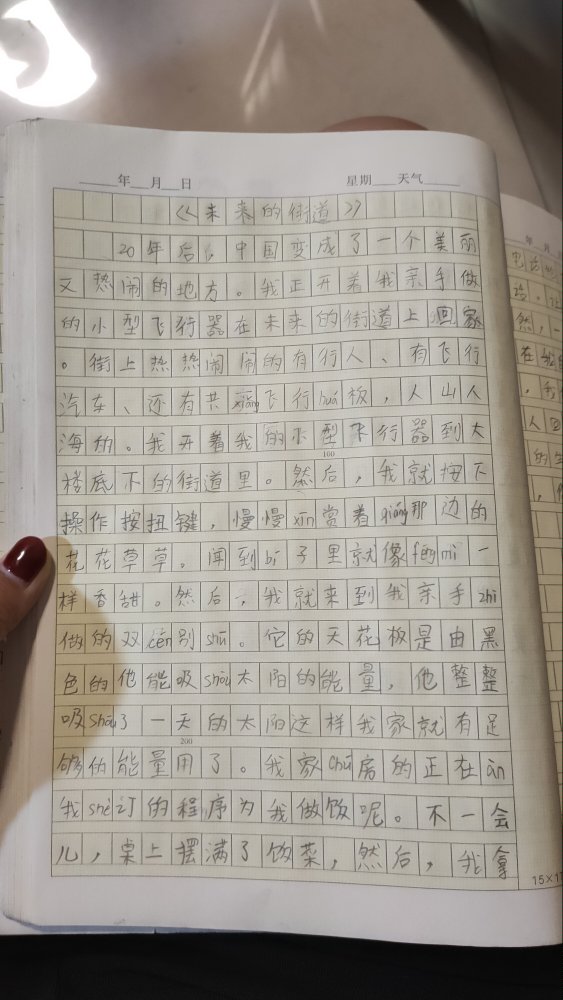 年 月 日 星期 天气
《未来的街道》
20年后,中国变成了一个美丽
又热闹的地方。我正开着我亲手做
的小型飞行器在未来的街道上回家
。街上热热闹闹的有行人、有飞行
汽车、还有共xiǎng飞行huá板,人山人
海的。我开着我的小型飞行器到大
100
楼底下的街道里。然后,我就按下
操作按扭键,慢慢xīn赏着qiáng那边的
花花草草。闻到bí子里就像fēng mì一
样香甜。然后,我就来到我亲手zhì
做的双céng别shù。它的天花板是由黑
色的他能吸shōu太阳的能量,他整整
吸shōu了一天的太阳这样我家就有足
200
够的能量用了。我家chú房的正在àn
我shè订的程序为我做饭呢。不一会
儿,桌上摆满了饭菜,然后,我拿
15×1
年 月